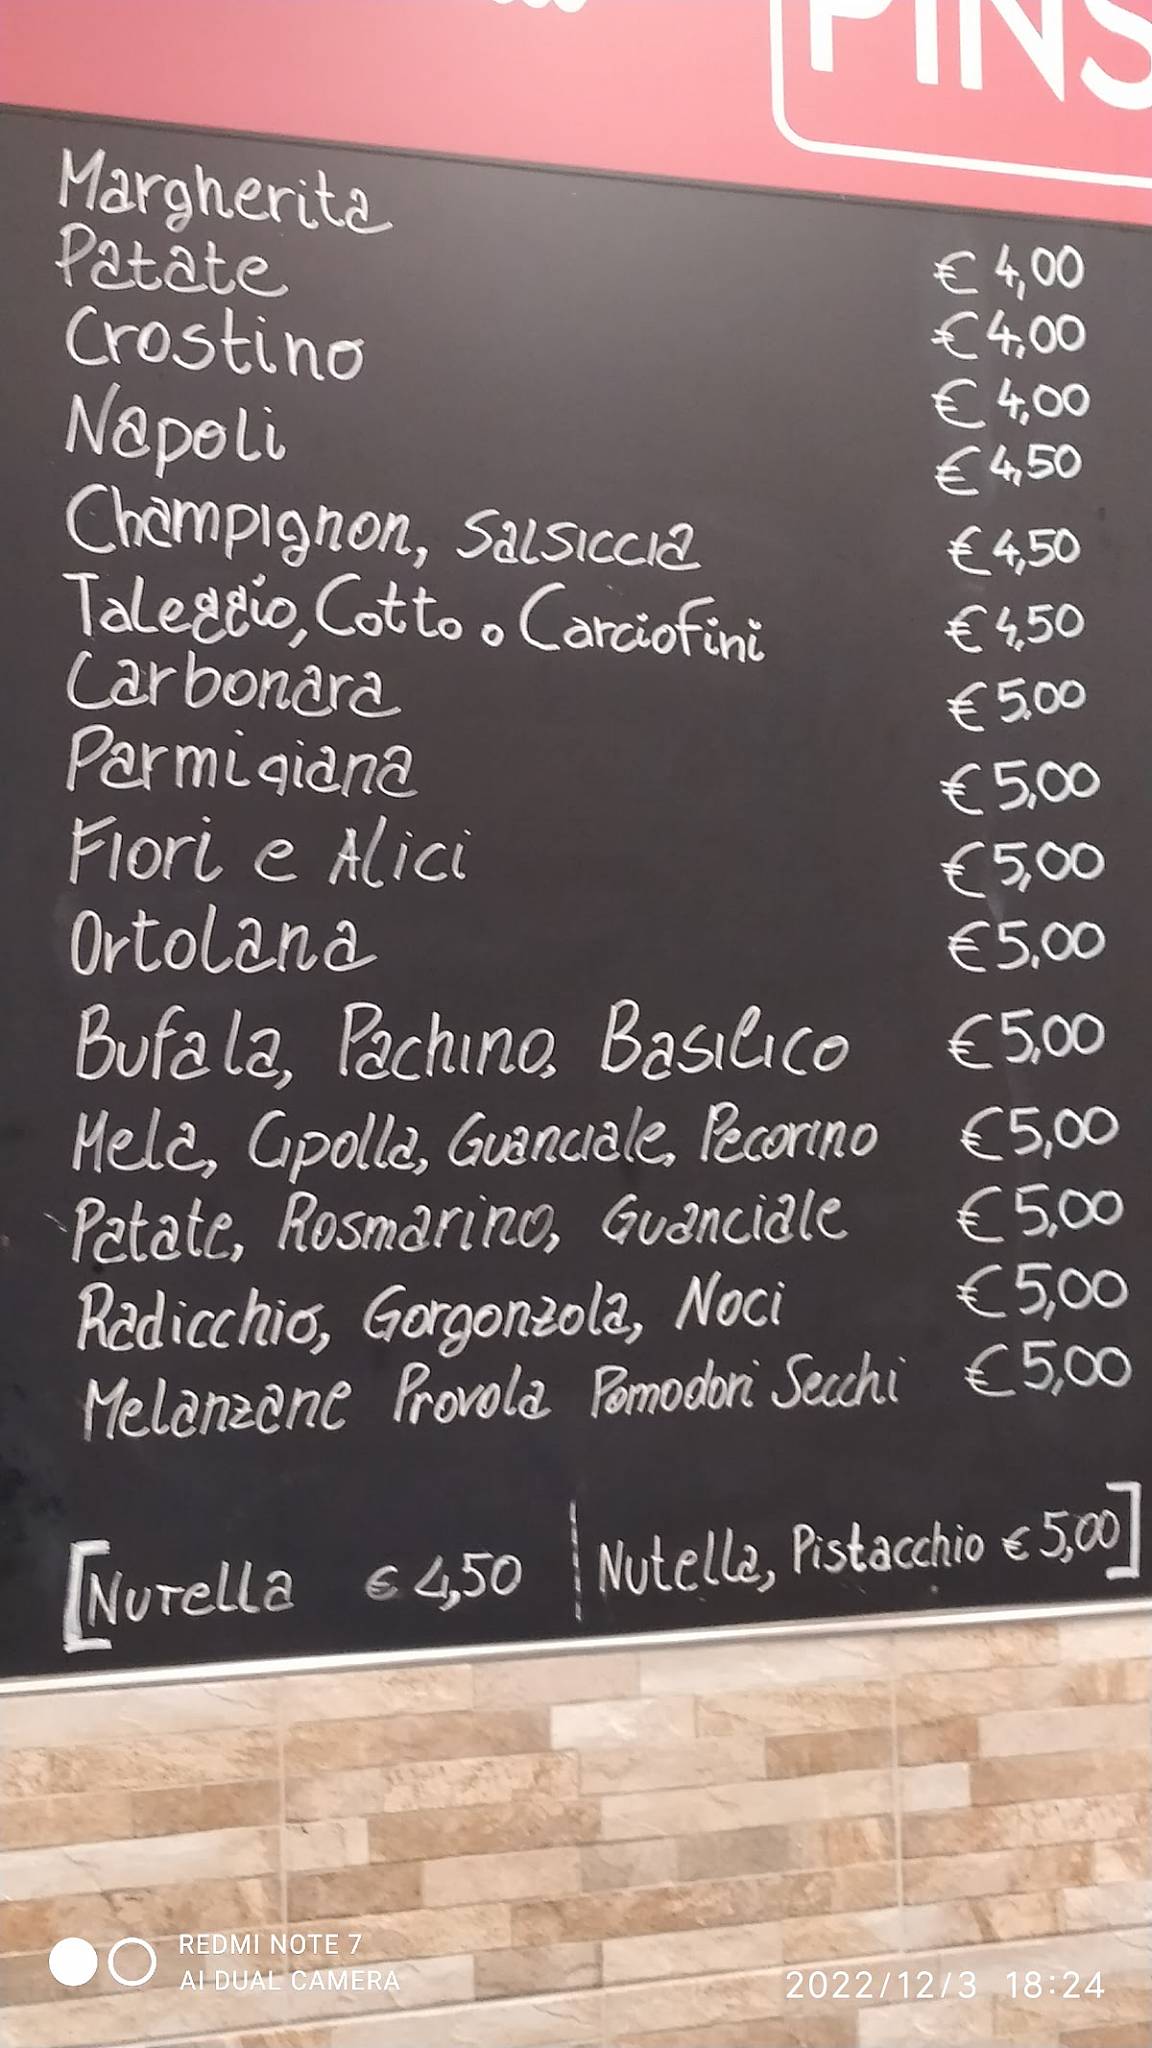 PINS
Margherita € 4,00
Patate € 4,00
Crostino € 4,00
Napoli € 4,50
Champignon, Salsiccia € 4,50
Taleggio, Cotto o Carciofini € 4,50
Carbonara € 5,00
Parmigiana € 5,00
Fiori e Alici € 5,00
Ortolana € 5,00
Bufala, Pachino, Basilico € 5,00
Mela, Cipolla, Guanciale, Pecorino € 5,00
Patate, Rosmarino, Guanciale € 5,00
Radicchio, Gorgonzola, Noci € 5,00
Melanzane Provola Pomodori Secchi € 5,00
[Nutella € 4,50 | Nutella, Pistacchio € 5,00]
REDMI NOTE 7
AI DUAL CAMERA
2022/12/3 18:24